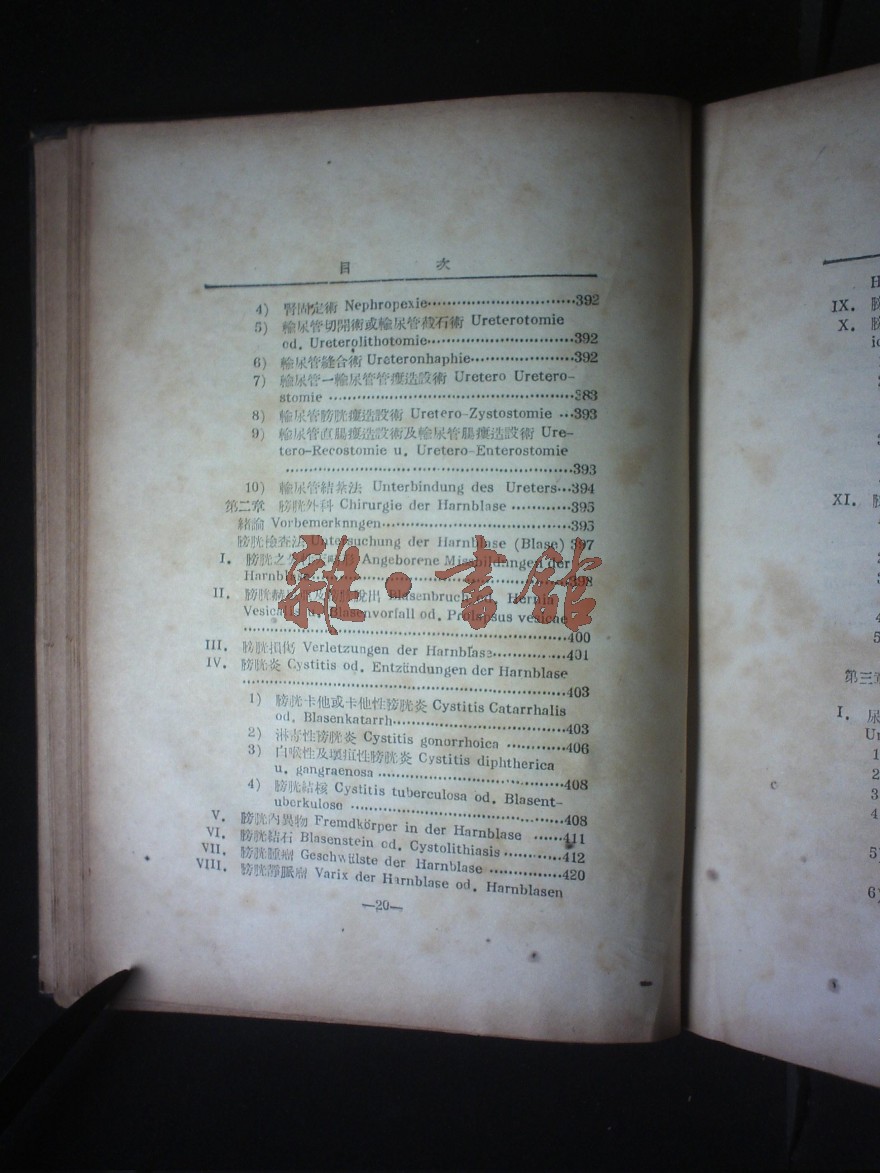 目 次
4) 腎固定術 Nephropexie······392
5) 輸尿管切開術或輸尿管截石術 Ureterotomie
od. Ureterolithotomie······392
6) 輸尿管縫合術 Ureteronhaphie······392
7) 輸尿管一輸尿管管瘻造設術 Uretero Uretero-
stomie ······383
8) 輸尿管膀胱瘻造設術 Uretero-Zystostomie ···393
9) 輸尿管直腸瘻造設術及輸尿管腸瘻造設術 Ure-
tero-Recostomie u. Uretero-Enterostomie
······393
10) 輸尿管結紮法 Unterbindung des Ureters···394
第二章 膀胱外科 Chirurgie der Harnblase ······395
緒論 Vorbemerknngen······395
膀胱檢查法 Untersuchung der Harnblase (Blase) 397
I. 膀胱之 Angeborene Missbildungen der
Harnblase······398
II. 膀胱 脫出 Blasenbruch od. Hernia
Vesicalis u. Blasenvorfall od. Prolapsus vesiche
······400
III. 膀胱損傷 Verletzungen der Harnblase······401
IV. 膀胱炎 Cystitis od. Entzündungen der Harnblase
······403
1) 膀胱卡他或卡他性膀胱炎 Cystitis Catarrhalis
od. Blasenkatarrh······403
2) 淋毒性膀胱炎 Cystitis gonorrhoica ······406
3) 白喉性及壞疽性膀胱炎 Cystitis diphtherica
u. gangraenosa ······408
4) 膀胱結核 Cystitis tuberculosa od. Blasent-
uberkulose ······408
V. 膀胱內異物 Fremdkörper in der Harnblase ······411
VI. 膀胱結石 Blasenstein od. Cystolithiasis ······412
VII. 膀胱腫瘤 Geschwülste der Harnblase ······420
VIII. 膀胱靜脈瘤 Varix der Harnblase od. Harnblasen
—20—
雜·書館
H
IX. 膀
X. 膀
ic
XI. 膀
4
5
第三章
I. 尿
Ur
1
2
3
4
5)
6)